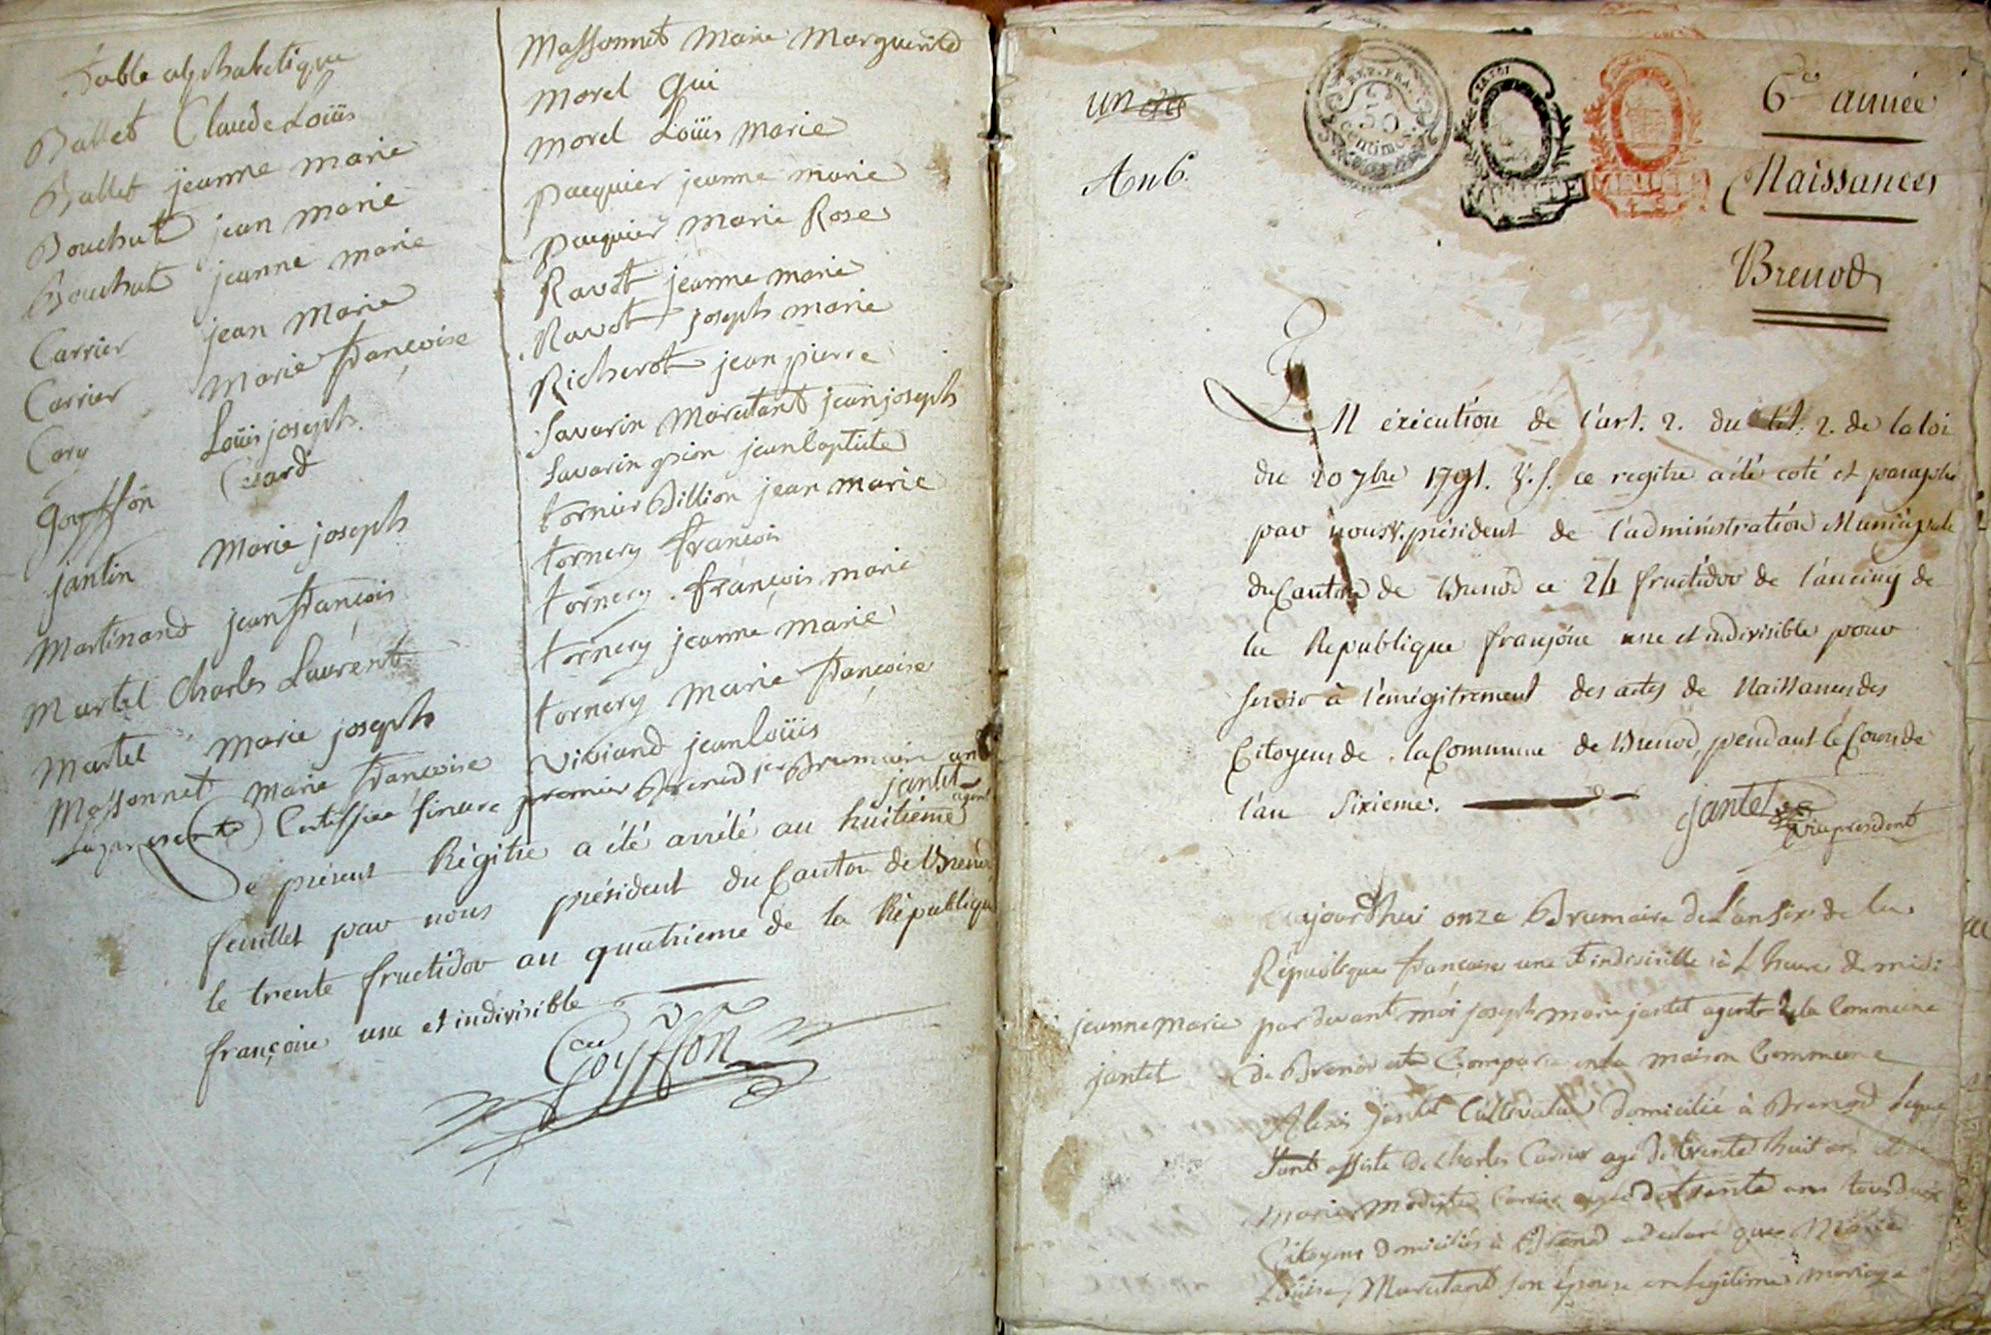 Table alphabetique
Ballet Claude Loüis
Ballet jeanne marie
Bouchut jean marie
Bouchut jeanne marie
Carrier jean Marie
Carrier Marie françoise
Cary Loüis joseph
Goyffon Cesard
jantin Marie joseph
Martinand jean françois
Martel Charles Laurent
Martel Marie joseph
Massonnet Marie françoise
Massonnet Marie Marguerite
morel Gui
morel Loüis marie
pacquier jeanne marie
pacquier marie Rose
Ravot jeanne marie
Ravot joseph marie
Richerot jean pierre
Savarin Marutant jean joseph
Savarin pion jean baptiste
tornier Billion jean marie
tornery françois
tornery françois marie
tornery jeanne marie
tornery Marie françoise
Viviand jean loüis
Certiffiée sincere Brenod 1er Brumaire an
jantet
agent
Le présent Régitre a été arrêté au huitieme
feuillet par nous président du Canton de Brenod
le trente fructidor an quatrieme de la Républiqu
françoise une et indivisible
Goyffon
un
An 6.
REP. FRA.
50
centimes
6e année
Naissances
Brenod
En éxécution de l'art. 2. du tit. 2. de la loi
du 20 7bre 1791. V.S. ce regitre a été coté et paraphé
par nous V. président de l'administration Municipale
du Canton de Brenod ce 24 fructidor de l'an cinq de
la Republique françoise une et indivisible pour
servir à l'enrégitrement des actes de Naissances des
Citoyens de la Commune de Brenod, pendant le Cours de
l'an Sixieme.
jantet
vice president
aujourdhui onze Brumaire de L'an Six de la
République françoise une et indivisible à heure de midi
jeanne marie
jantet
par devant moi joseph marie jantet agent de la Commune
de Brenod est Comparu en la maison Commune
Alexis jantet Cultivateur Domicilié à Brenod Lequel
assisté de Charles Carrier agé de trente huit ans et de
Marie Modeste Carrier agée de trente ans tous deux
Citoyens Domiciliés à Brenod a declaré que Marie
Loüise Marutant son épouse en legitime mariage